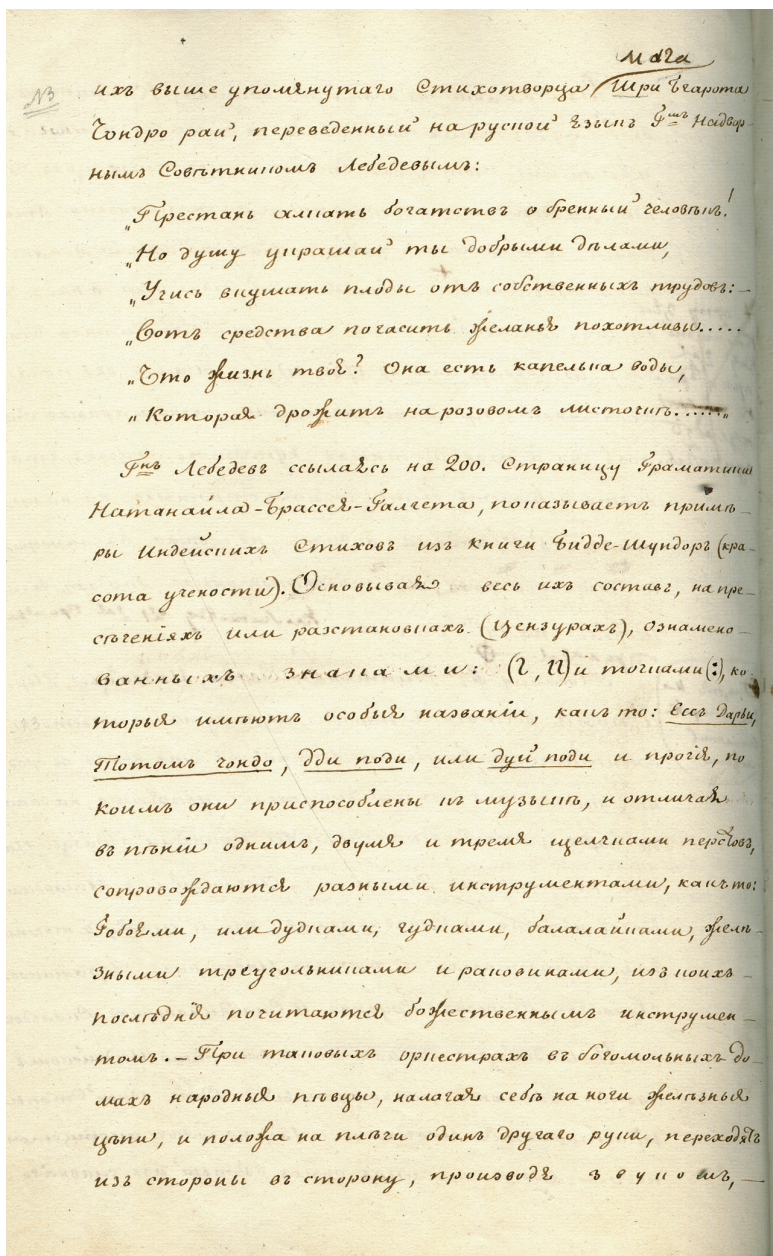 №3
Мога
ихъ выше упомянутаго Стихотворца Шри Бгарота
Чондро рай, переведенный на руской языкъ Гмъ Надвор-
нымъ Совѣтникомъ Лебедевымъ:
„Престань алкать богатствъ о бренный человѣкъ!
„Но душу украшай ты добрыми дѣлами,
„Учись вкушать плоды отъ собственныхъ трудовъ: —
„Вотъ средства погасить желанья похотливы.....
„Что жизнь твоя? Она есть капелька воды,
„Которая дрожитъ на розовомъ листочкѣ......„
Гнъ Лебедевъ ссылаясь на 200. Страницу Граматики
Натанаила-Брассея-Галгета, показываетъ примѣ-
ры Индейскихъ Стиховъ изъ книги Бидде-Шундоръ (кра-
сота учености). Основывая весь ихъ составъ, на пре-
сѣченіяхъ или разстановкахъ (Цензурахъ), ознамено-
ванныхъ знаками: и точками (:), ко-
торыя имѣютъ особыя названіи, какъ то: Ессъ Дарьи,
Потомъ чондо, Дди поди, или дуй поди и прочія, по
коимъ они приспособлены къ музыкѣ, и отличая
въ пѣніи однимъ, двумя и тремя щелчками перстовъ,
сопровождаются разными инструментами, какъ то:
Гобоями, или дудками, гудками, балалайками, желѣ-
зными треугольниками и раковинами, изъ коихъ
послѣднія почитаются божественнымъ инструмен-
томъ. — При таковыхъ оркестрахъ въ богомольныхъ до-
махъ народныя пѣвцы, налагая себѣ на ноги желѣзныя
цѣпи, и положа на плѣчи одинъ другаго руки, переходятъ
изъ стороны въ сторону, производя звукомъ, —